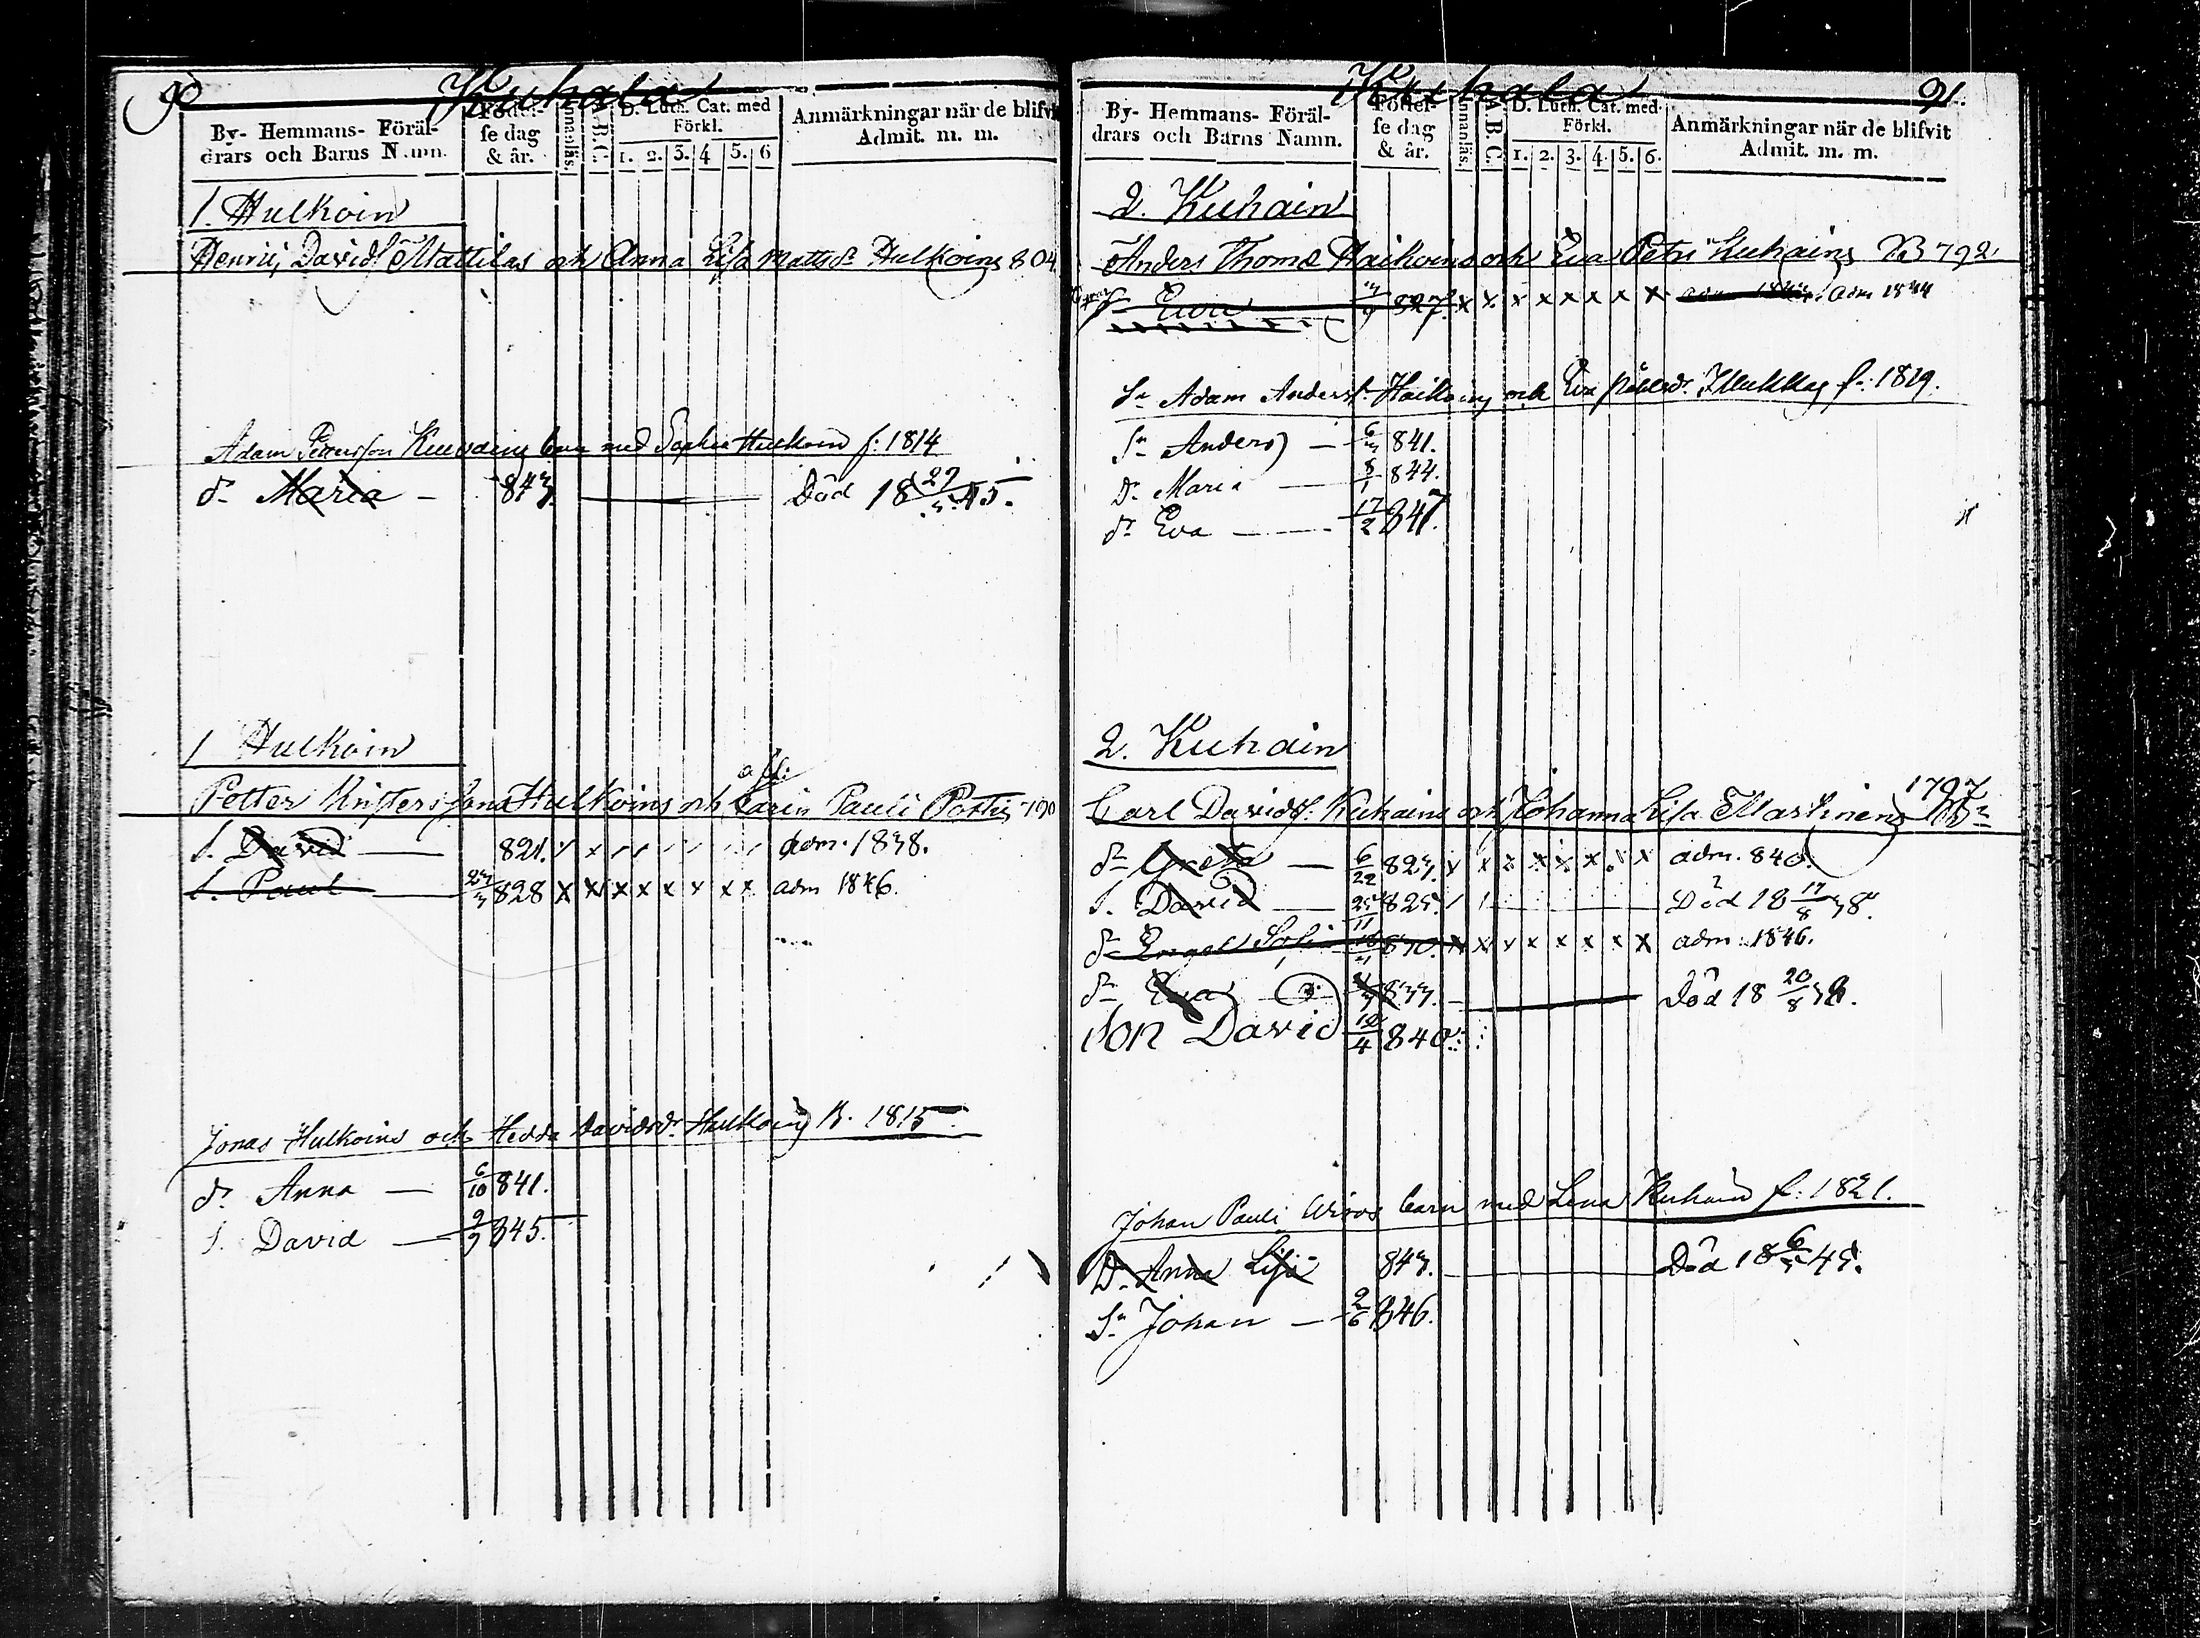 90
Kuhala
By- Hemmans- Föräl-
drars och Barns Namn.
Födel-
se dag
& år.
Innanläs.
A.B.C.
D. Luth. Cat. med
Förkl.
1. 2. 3. 4 5. 6
Anmärkningar när de blifvit
Admit. m. m.
1. Hulkoin
Henric Davids Mattilas och Anna Lisa Mattsdr Hulkoins 804
Adam Kuusains barn med Sophia Hulkoin f: 1814
dr Maria — 843. — Död 18 27/5 45.
1 Hulkoin
Petter Hulkoins och Carin Pauli
S. David — 821. adm. 1838.
S. Paul — 23/3 828 x x x x x x x x adm 1846.
Jonas Hulkoins och Hedda Davidsdr Hulkoins B. 1815.
dr Anna — 6/10 841.
S. David — 845.
Kuhala
91.
By- Hemmans- Föräl-
drars och Barns Namn.
Födel-
se dag
& år.
Innanläs.
A.B.C.
D. Luth. Cat. med
Förkl.
1. 2. 3. 4. 5. 6.
Anmärkningar när de blifvit
Admit. m. m.
2. Kuhain
Anders Thomæ Haikoins och Eva Petri Kuhains B 792
Eva 827. x x x x x x x x adm 1844
Sn Adam Anders Haikoins och Eva f: 1819.
Sn Anders — 841.
Dr Maria — 8/1 844.
dr Eva — 17/2 847.
2. Kuhain
1797
Carl Davids Kuhains och Johanna Lisa Martinens
dr Greta — 6/22 823. x x x x x x x x adm. 840.
S. David — 25/11 825. Död 18 17/8 38.
dr Engel Sofia x x x x x x x x adm: 1846.
dr Eva 833. — Död 18 20/8 38.
Son David 10/4 840.
Johan Pauli barn med Lena Kuhain f: 1821.
D. Anna Lisa 843. — Död 18 6/5 45.
Sn Johan — 2/6 846.